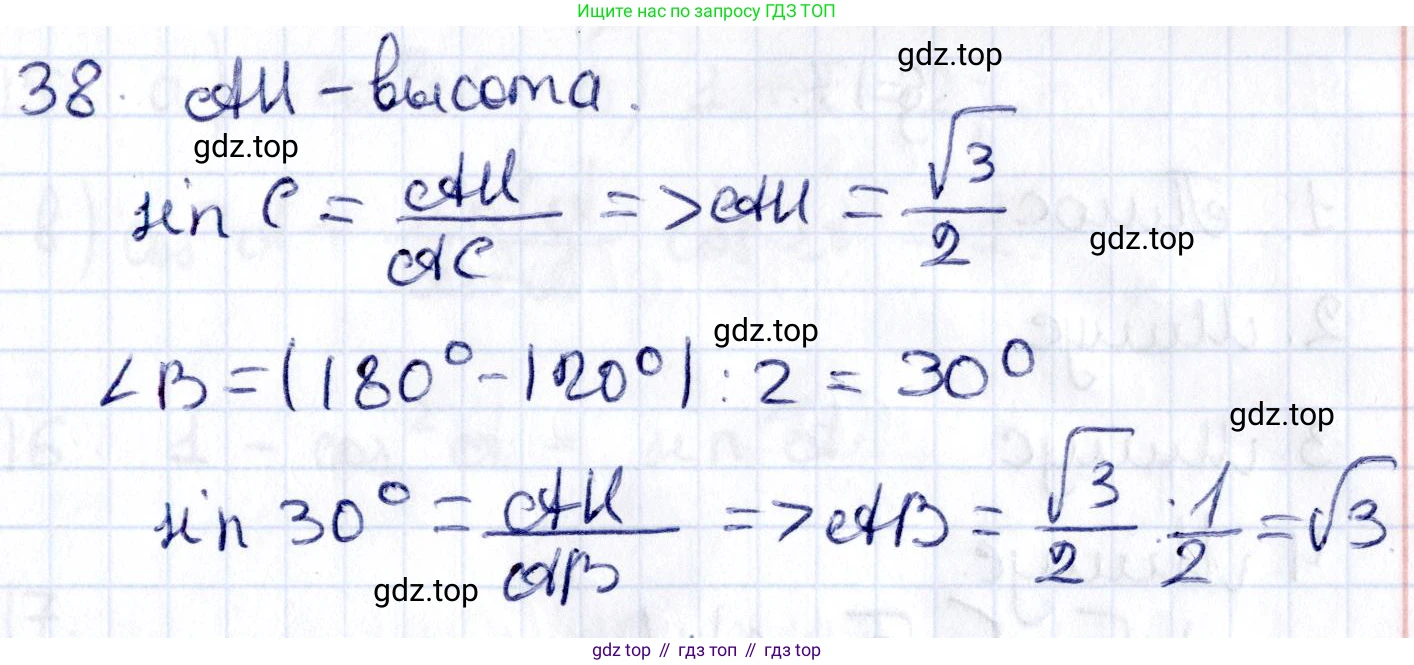 Ищите нас по запросу ГДЗ ТОП
gdz.top
38. AH – высота.
gdz.top
sin C = AH/AC => AH = √3/2
gdz.top
gdz.top
∠B = (180° - 120°) : 2 = 30°
gdz.top
sin 30° = AH/AB => AB = √3/2 : 1/2 = √3
gdz.top
gdz top // гдз топ // gdz top